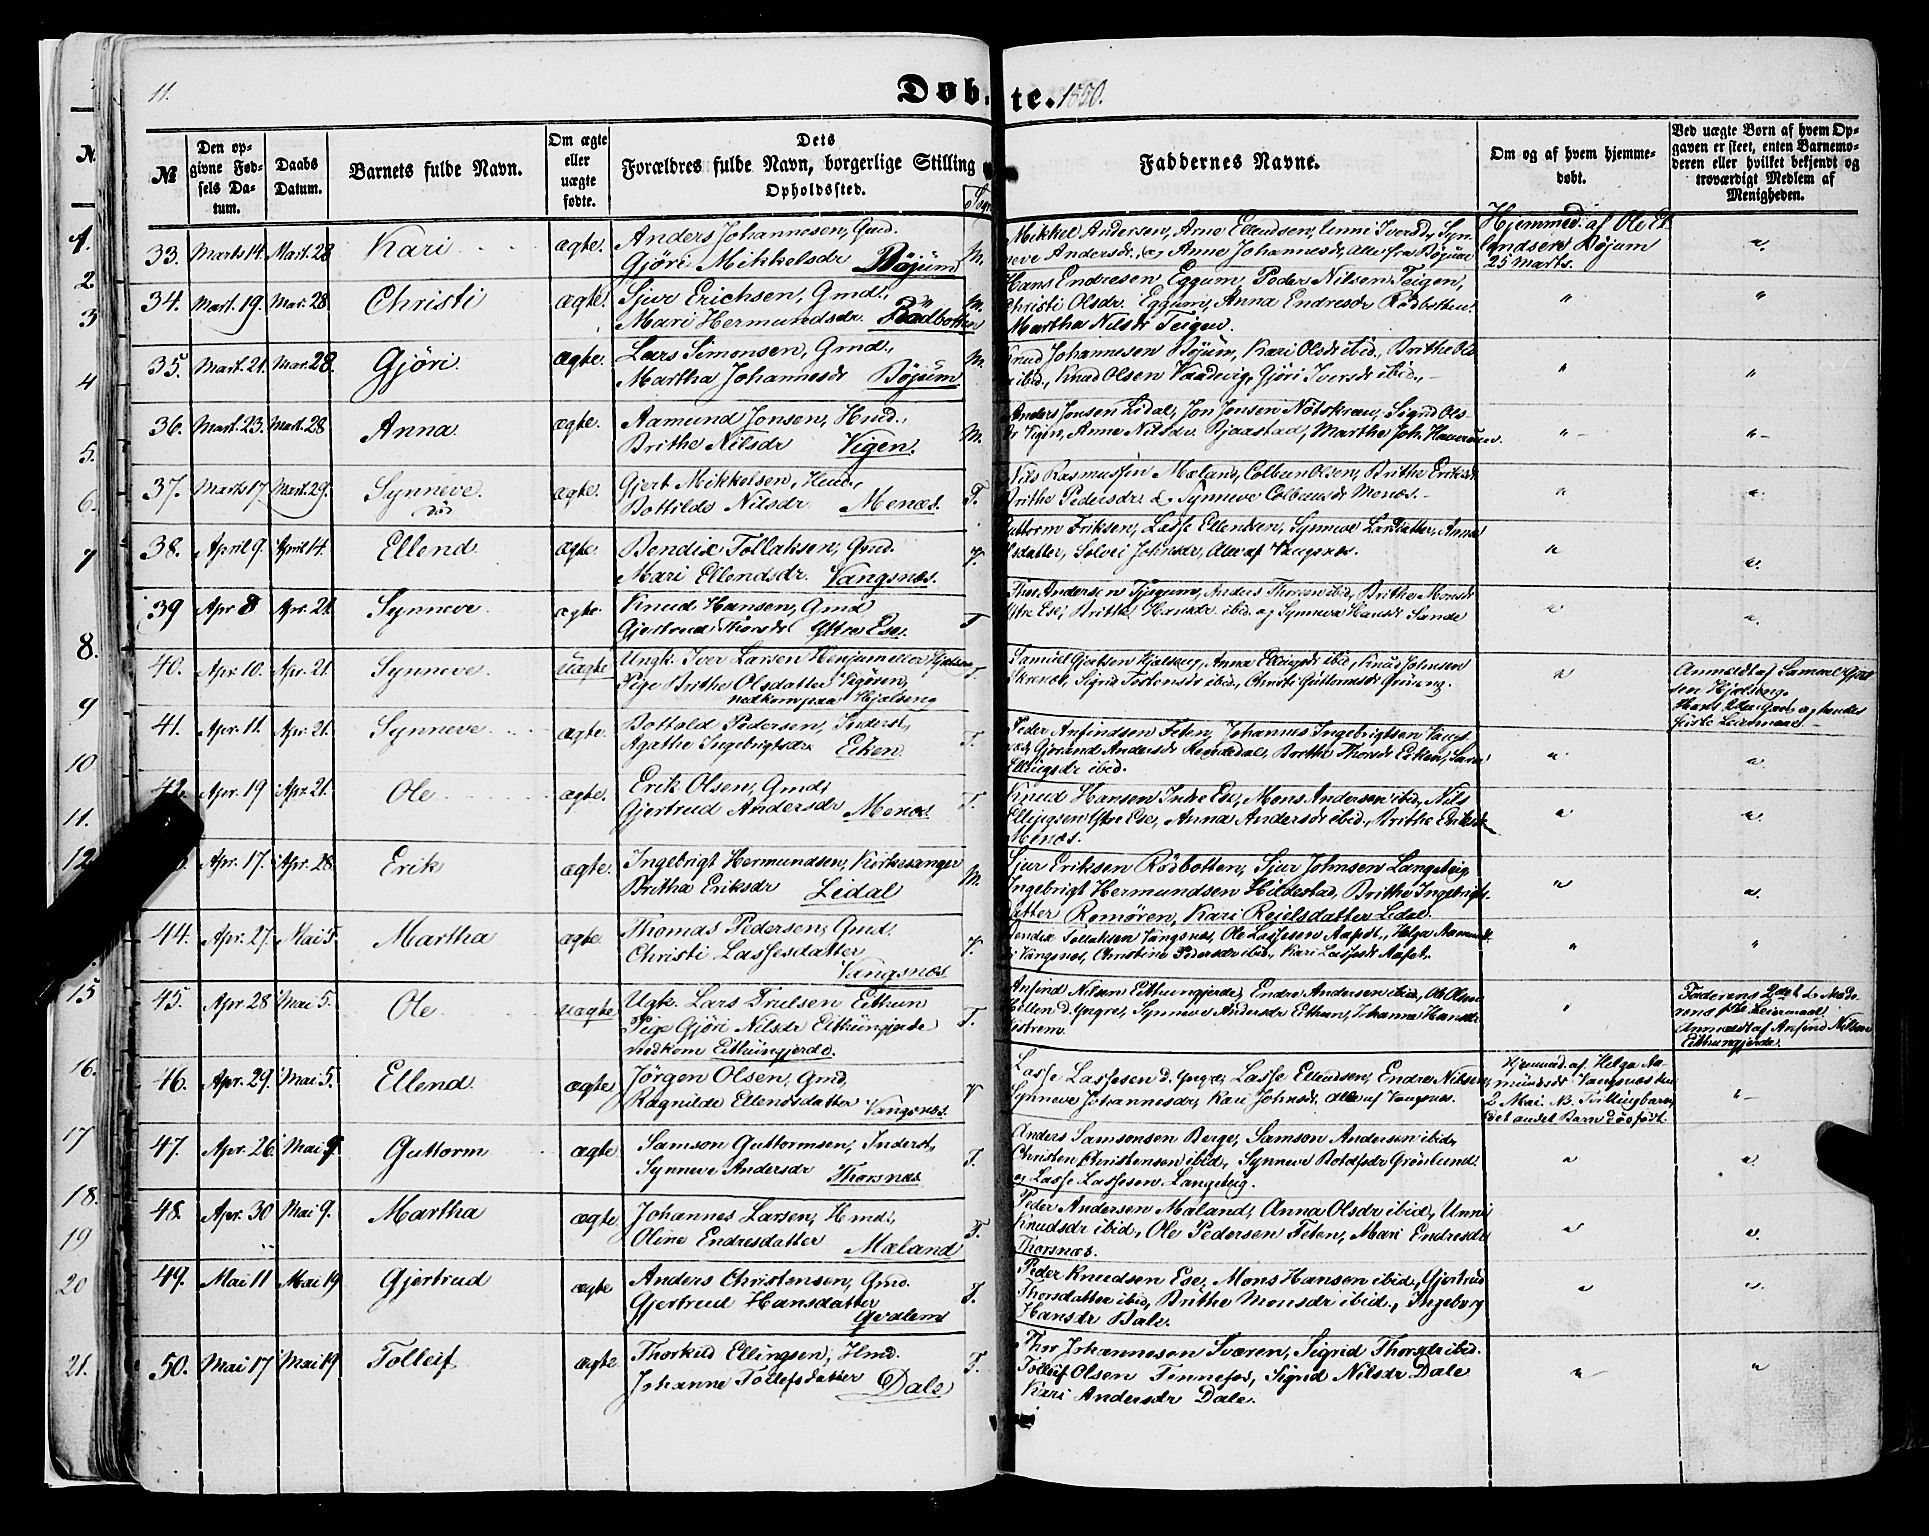 11.
Døbte. 1850.
№
Den opgivne Fødsels Datum.
Daabs Datum.
Barnets fulde Navn.
Om ægte eller uægte fødte.
Dets Forældres fulde Navn, borgerlige Stilling
Opholdssted.
Sogn
Faddernes Navne.
Om og af hvem hjemmedøbt.
Ved uægte Børn af hvem Opgaven er skeet, enten Barnemoderen eller hvilket bekjendt og troværdigt Medlem af Menigheden.
33. Marts 14. Mart. 28 Kari ægte. Anders Johannesen, Gmd. M. Mikkel Andersen, Arne Ellendsen,
Gjöri Mikkelsdr Böjum Andersdr, og Anne Johannesdr, Alle fra Böjum
Hjemmed. af Ole El
lendsen Böjum
25 Marts.
34. Mart. 19. Mar. 28 Christi ægte. Sjur Erichsen, Gmd., M. Hans Endresen Eggum, Peder Nilsen Teigen,
Mari Hermundsdr. Rödbotten Christi Olsdr. Eggum, Anna Endresdr Rödbotten.
Martha Nilsdr Teigen.
35. Mart. 21. Mar. 28. Gjöri. ægte. Lars Simonsen, Gmd., M. Knud Johannesen Böjum, Kari Olsdr ibid., Brithe Ols
Martha Johannesdr Böjum ibid., Knud Olsen Vaadevig, Gjöri Iversdr ibid.,
36. Mart. 23. Mart. 28 Anna. ægte. Aamund Jonsen, Hmd., M. Anders Jonsen Lidal, Jon Jonsen Nötskrau, Sigrid Ols
Brithe Nilsdr Vigen. dr Vigen, Anne Nilsdr. Bjaastad, Marthe Joh. Haverum.
37. Marts 17 Mart. 29. Synneve. ægte. Gjert Mikkelsen, Hmd., T. Nils Rasmussen Mæland, Colbeun Olsen, Brithe Eriksdr
död Bottilde Nilsdr Menæs. Brithe Pedersdr. & Synneve Colbensdr Menæs.
38. April 9. April 14. Ellend ægte. Bendix Tollaksen, Gmd. V. Guttorm Eriksen, Lasse Ellendsen, Synneve Larsdatter, Anna
Mari Ellendsdr. Vangsnæs. datter, Solvei Johnsdr, Alle af Vangsnæs.
39 Apr. 8 Apr. 21. Synneve ægte. Knud Hansen, Gmd T Thor Andersen Tjugum, Anders Thorsen ibid, Brithe Monsdr
Gjertrud Thorsdr Yttre Ese. Ytre Ese, Brithe Hansdr ibid. og Synneva Hansdr Sande
40. Apr. 10. Apr. 21. Synneve. uægte Ungk. Iver Larsen Henjum T. Samuel Gjertsen Hjalseng, Anna Ellingsdr ibid, Knud Johnsen
Pige Brithe Olsdatter Sigrid Torstensdr ibid., Christi Guttormsdr
nedkom paa Hjalseng
Anmeldt af Samuel Gjert
sen Hjalseng.
Leiermaal.
41. Apr. 11. Apr. 21. Synneve ægte. Bottold Pedersen, Inderst, T. Peder Anfindsen Feten, Johannes Ingebrigtsen Vangs
Agathe Ingebrigtsdr Eiken. næs, Gjörand Andersdr Rendedal, Brithe Thorsdr Eiken,
Ellingsdr ibid.
42. Apr. 19 Apr. 21. Ole ægte. Erik Olsen, Gmd, T. Knud Hansen Indre Ese, Mons Andersen ibid, Nils
Gjertrud Andersdr Menæs. Ellingsen Ytre Ese, Anna Andersdr ibid., Brithe Eriksdr
Menæs.
Apr. 17. Apr. 28. Erik ægte. Ingebrigt Hermundsen, Kirkesanger M. Sjur Eriksen Rödbotten, Sjur Johnsen Langeteig
Britha Eriksdr Lidal Ingebrigt Hermundsen Hildestad, Brithe Ingebrigts
datter Romören, Kari Reielsdatter Lidal.
44. Apr. 27. Mai 5. Martha ægte. Thomas Pedersen, Gmd. V. Bendix Tollaksen Vangsnæs, Ole Lassesen Aafedt, Helga Aamunds
Christi Lassesdatter Vangsnæs, Christine Pedersdr ibid., Kari Lassesdr Aafet.
Vangsnæs
45. Apr. 28 Mai 5. Ole uægte Ugk. Lars Trulsen Eithun T. Anfind Nilsen Eithungjerde, Endre Andersen ibid, Ole Olsen
Pige Gjöri Nilsdr Eithungjerde d. yngre, Synneve Andersdr Eithun, Johanna Hansdr
nedkom Eithungjerde.
Faderens 2det & Mode
rens 1ste Leiermaal
Anmeldt af Anfind Nilsen
Eithungjerde.
46. Apr. 29. Mai 5. Ellend. ægte Jörgen Olsen, Gmd, V Lasse Lassesen d. yngre, Lasse Ellendsen, Endre Nilsen,
Ragnilde Ellendsdatter Vangsnæs. Synneve Johannesdr, Kari Johnsdr, alle af Vangsnæs.
Hjemmed. af Helga Aa
mundsdr Vangsnæs den
2 Mai. NB. Tvillingbarn,
det andet Barn dödfödt.
47. Apr. 26. Mai 9. Guttorm ægte Samson Guttormsen, Inderst, T. Anders Samsonsen Berge, Samson Andersen ibid,
Synneve Andersdr Thorsnæs Christen Christensen ibid, Synneve Botolfsdr Grönlund
og Lasse Lassesen Langeteig.
48. Apr. 30 Mai 9. Martha ægte Johannes Larsen, Hmd., T. Peder Andersen Mæland, Anna Olsdr ibid, Unni
Oline Endresdatter Mæland Knudsdr ibid, Ole Pedersen Feten, Mari Endresdr
Thorsnæs.
49. Mai 11 Mai 19. Gjertrud ægte Anders Christensen, Gmd. T. Peder Knudsen Ese, Mons Hansen ibid., Gjertrud
Gjertrud Hansdatter Thorsdatter ibid, Brithe Monsdr ibid., Ingeborg
Qvalem Hansdr Bale.
50. Mai 17 Mai 19 Tolleif ægte Thorkild Ellingsen, Hmd. T. Thor Johannesen Sværen, Sigrid Thorsdr ibid.
Johanne Tollefsdatter Dale Tolleif Olsen Tennefos, Sigrid Nilsdr Dale
Kari Andersdr Dale.